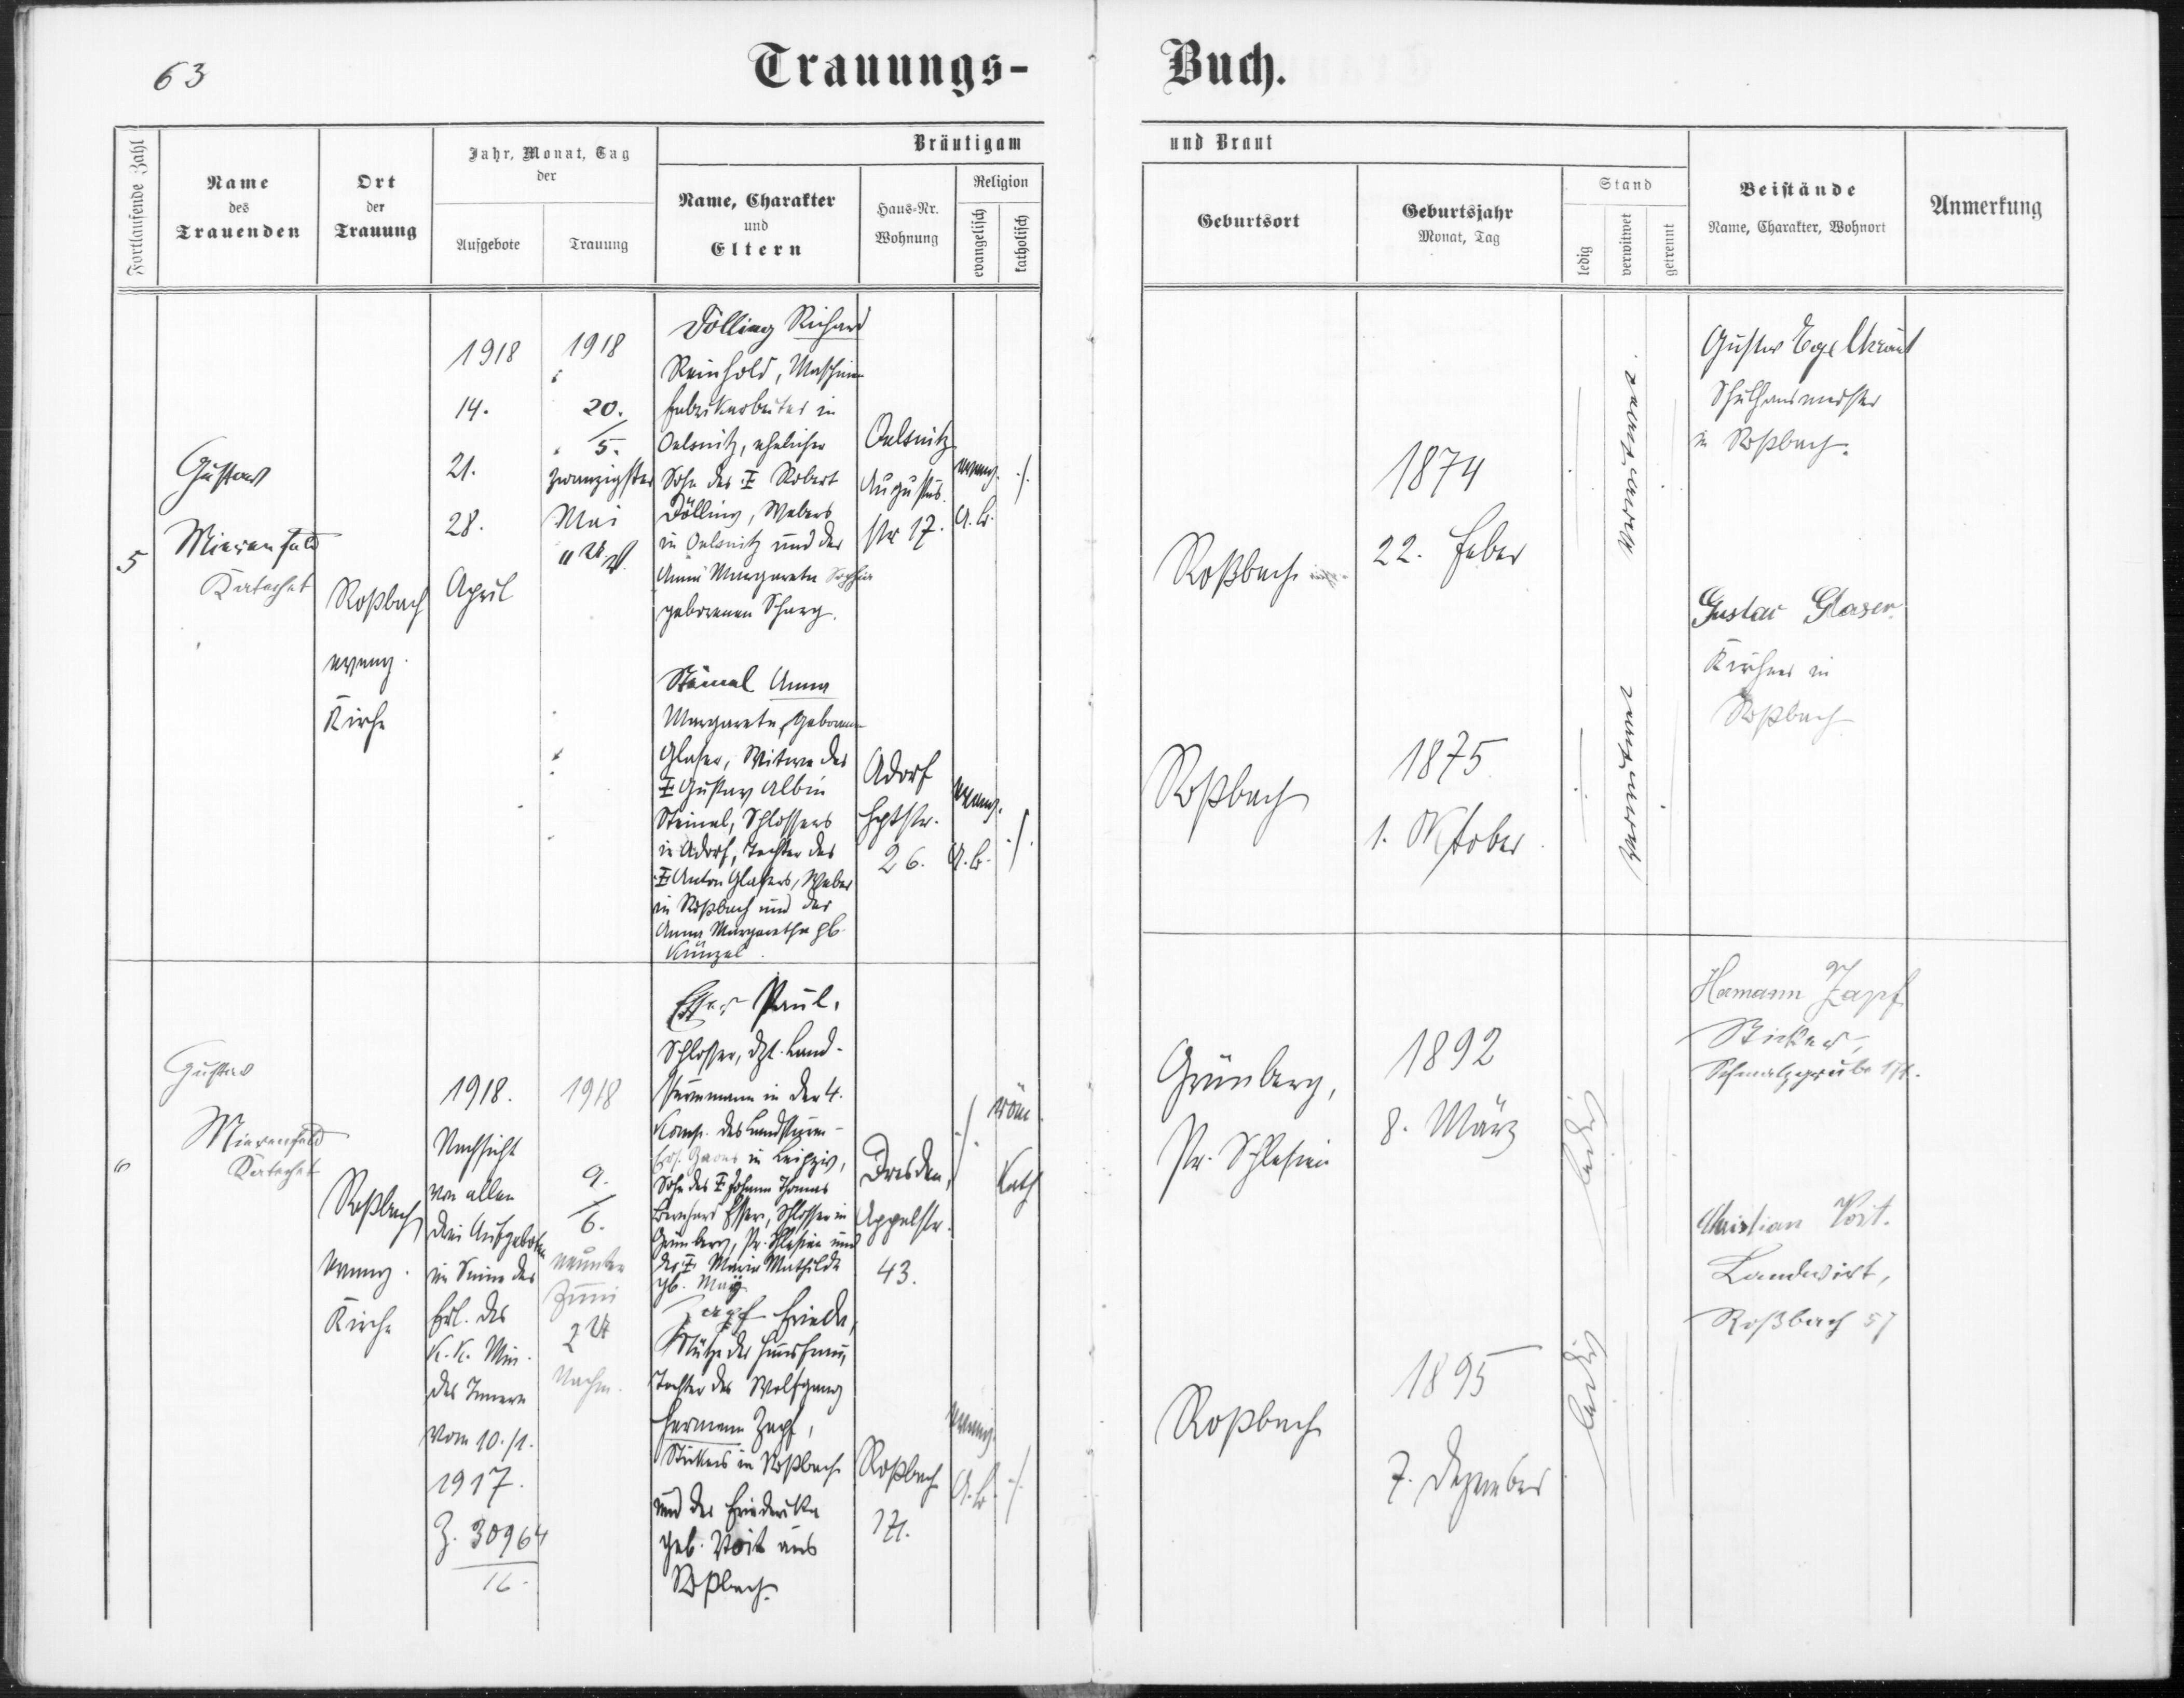 63
Trauungs-Buch.
Fortlaufende Zahl
Name
des
Trauenden
Ort
der
Trauung
Jahr, Monat, Tag
der
Aufgebote
Trauung
Bräutigam
Name, Charakter
und
Eltern
Haus-Nr.
Wohnung
Religion
evangelisch
katholisch
und Braut
Geburtsort
Geburtsjahr
Monat, Tag
Stand
ledig
verwitwet
getrennt
Beistände
Name, Charakter, Wohnort
Anmerkung
5
Gustav
Mierenfeld
Katechet
Roßbach
evang.
Kirche
1918
14.
21.
28.
April
1918
20.
5.
zwanzigster
Mai
Dölling Richard
Reinhold, Maschinen
fabrikarbeiter in
Oelsnitz, ehelicher
Sohn des ± Robert
Dölling, Webers
in Oelsnitz und der
Anna Margareta Sophia
geborenen
Oelsnitz
Augustus
str 17.
evang.
A. B.
./.
Roßbach
1874
22. Feber
verwitwet.
Gustav
Schulhausmeister
in Roßbach.
Steinel Anna
Margareta, geborene
Glaser, Witwe des
± Gustav Albin
Steinel, Schlossers
in Adorf, Tochter des
± Anton Glasers, Weber
in Roßbach und der
Anna Margaretha gb.
Künzel.
Adorf
Hptstr.
26.
evang.
A. B.
./.
Roßbach
1875
1. Oktober
verwitwet
Gustav Glaser
Kirchner in
Roßbach
6
Gustav
Mierenfeld
Katechet
Roßbach
evang.
Kirche
1918.
Nachsicht
von allen
drei Aufgeboten
im Sinne des
Erl. des
K. K. Min.
des Innern
vom 10./1.
1917.
Z. 30964
16.
1918
9.
6.
neunter
Juni
2 U
Nachm.
Esser Paul,
Schlosser, dzt. Land-
sturmmann in der 4.
Komp. des Landsturm-
in Leipzig,
Sohn des ± Johann Thomas
Bernhard Esser, Schlosser in
Grünberg, Pr. Schlesien und
der ± Maria Mathilde
gb. May
Dresden,
Appelstr.
43.
./.
röm.
Kath
Grünberg,
Pr. Schlesien
1892
8. März
ledig
Hermann Zapf
Sticker,
Schmalzgrube 171.
Zapf Frieda,
Stütze der Hausfrau,
Tochter des Wolfgang
Hermann Zapf,
Stickers in Roßbach
und der Friederike
geb. Voit aus
Roßbach.
Roßbach
171.
evang.
A. B.
./.
Roßbach
1895
7. Dezember
ledig
Christian Voit.
Landwirt,
Roßbach 57